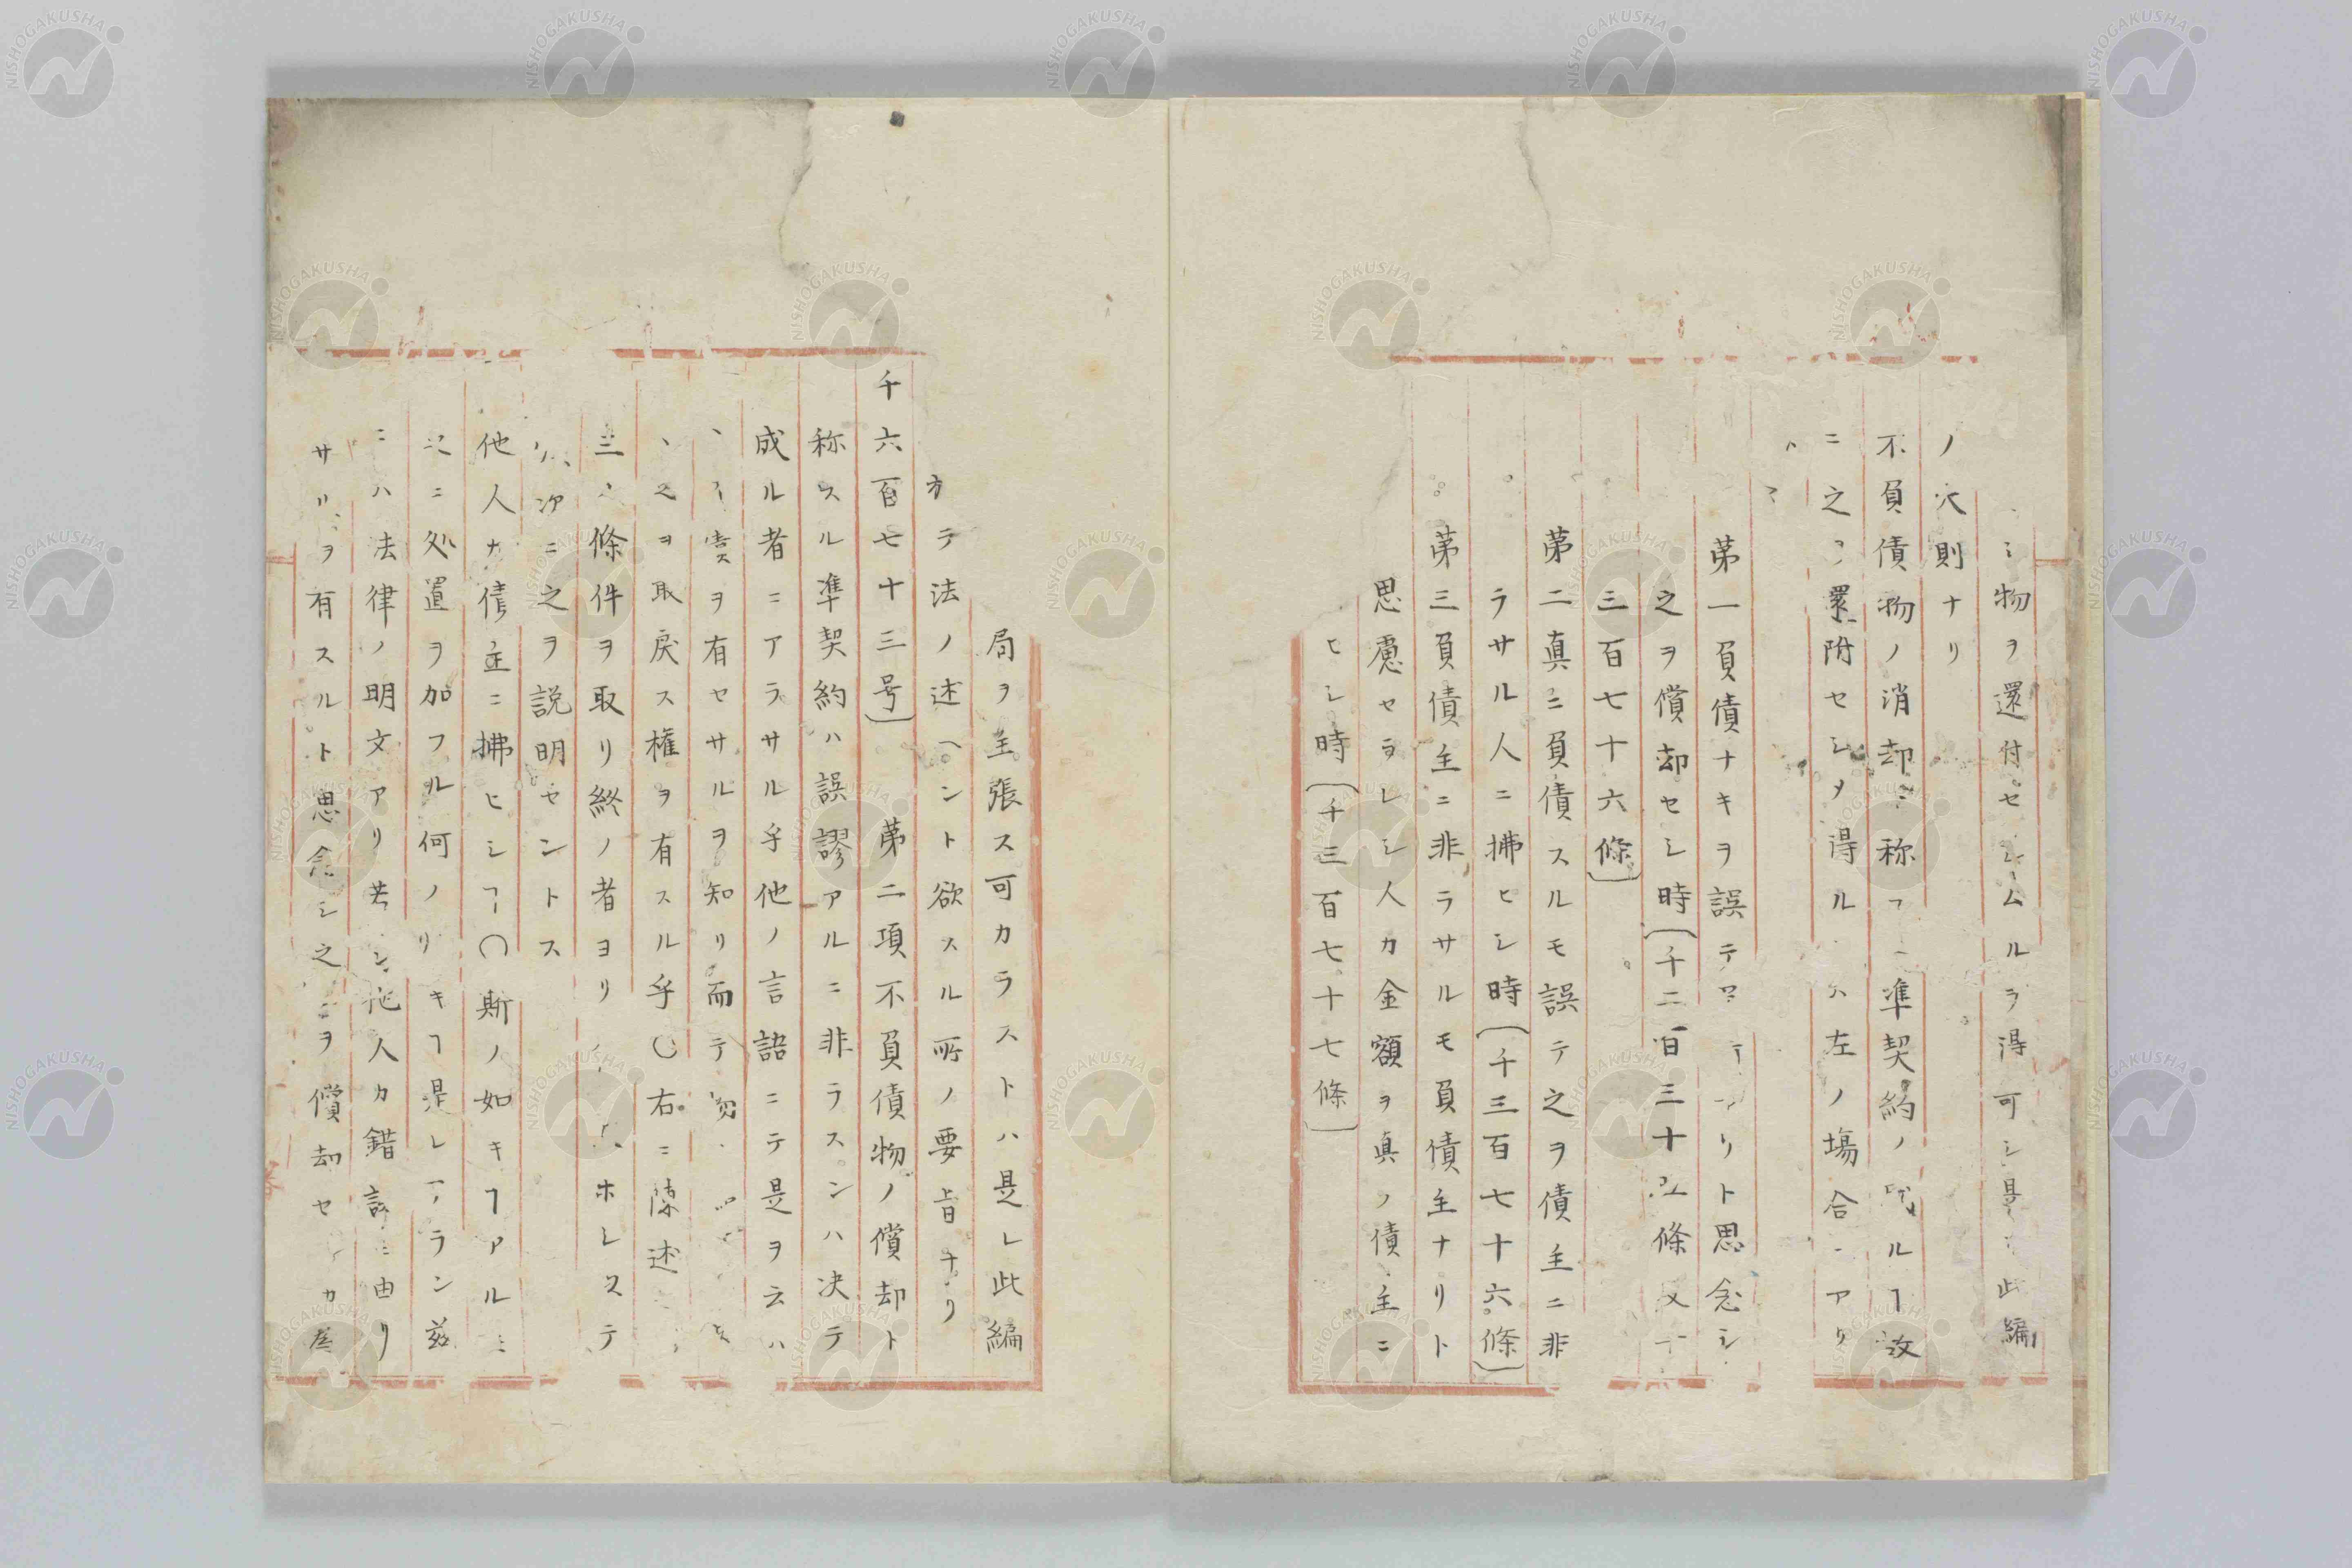 物ヲ還付セシムルヲ得可シ是此編
ノ穴則ナリ
不負債物ノ消却ニ称フ準契約ノ成ルヿ故
ニ之還附セシメ得ル左ノ場合アリ
第一負債ナキヲ誤テリト思念シ
之ヲ償却セシ時(千二百三十五條又千
三百七十六條)
第二真ニ負債スルモ誤テ之ヲ債主ニ非
ラサル人ニ拂ヒシ時(千三百七十六條)
第三負債主ニ非ラサルモ負債主ナリト
思慮セラレシ人カ金額ヲ真ノ債主ニ
ヒシ時(千三百七十七條)
局ヲ主張ス可カラストハ是レ此編
方テ法ノ述ヘント欲スル所ノ要旨ナリ
千六百七十三号) 第二項不負債物ノ償却ト
称スル準契約ハ誤謬アルニ非ラスンハ决テ
成ル者ニアラサル乎他ノ言語ニテ是ヲ云ハ
ヲ有セサルヲ知リ而テ
之ヲ取戻ス権ヲ有スル乎〇右ニ陳述
三條件ヲ取リ終ノ者ヨリホレステ
次ニ之ヲ説明セントス
他人ナ債主ニ拂ヒシヿ〇斯ノ如キヿアルニ
ニ処置ヲ加フル何ノリキヿ是レアラン玆
ニハ法律ノ明文アリ若シ他人カ錯誤ニ由リ
サルヲ有スルト思念シ之ヲ償却セカ